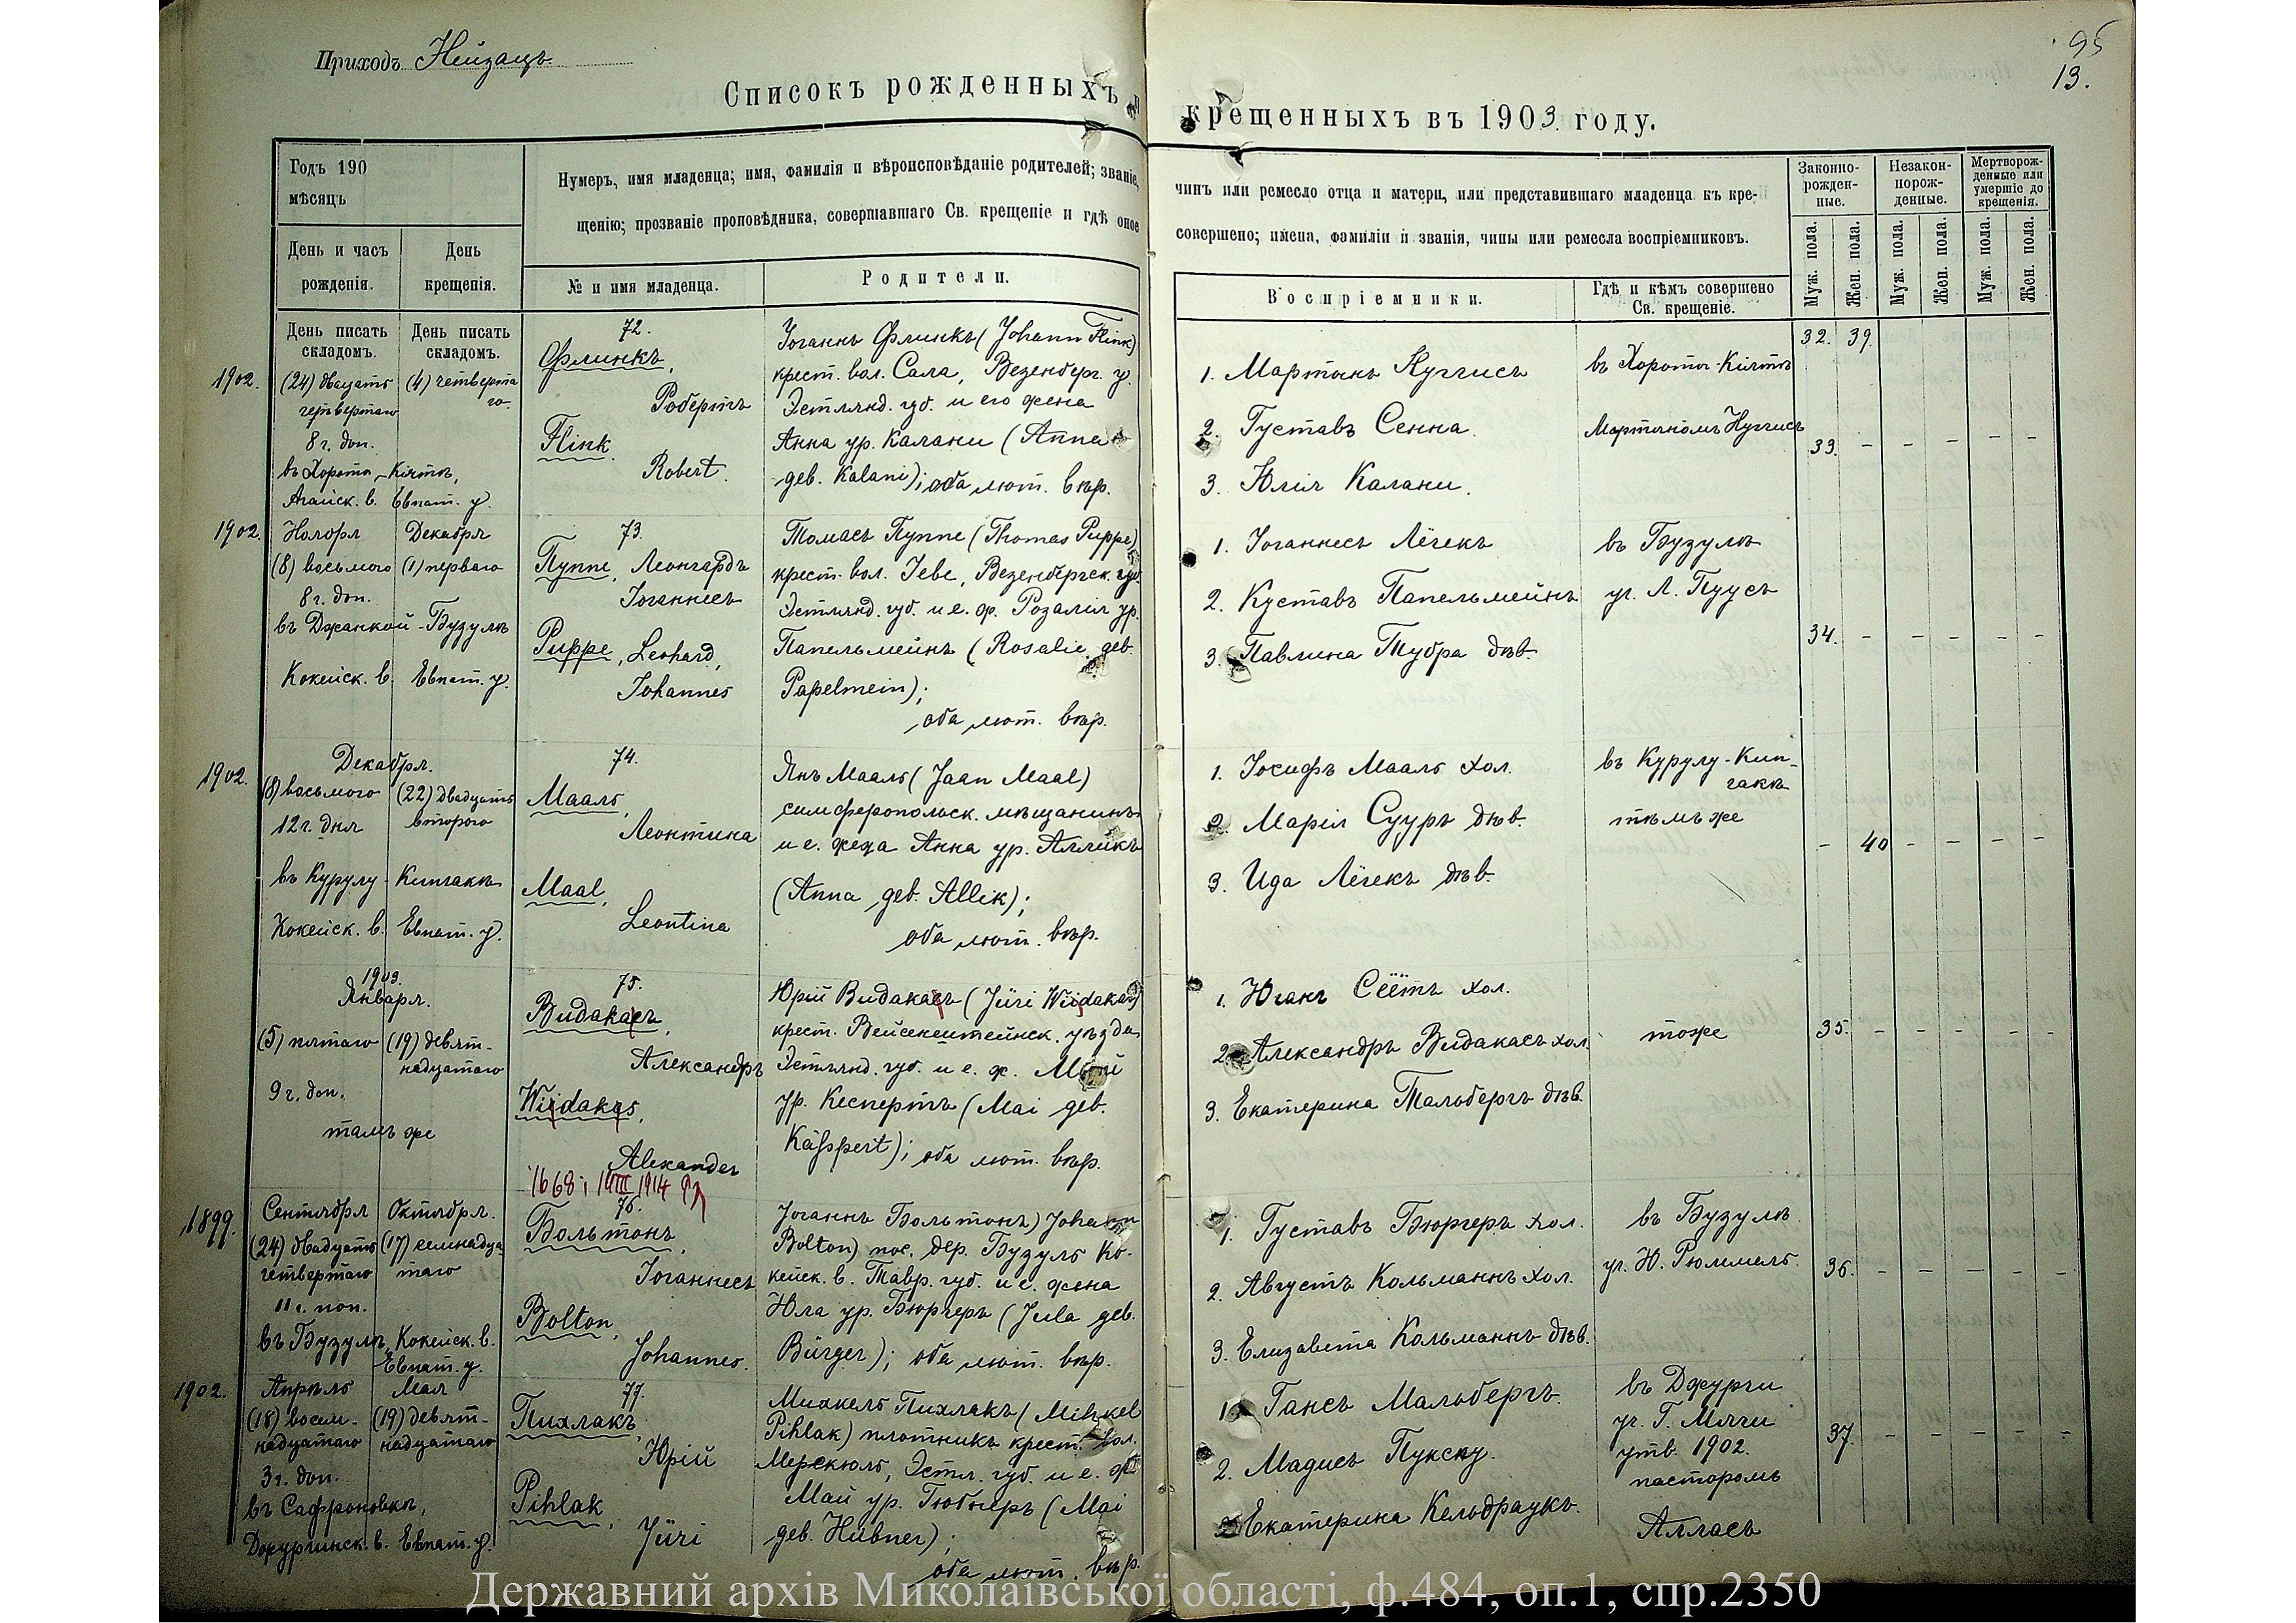 Приходъ Нейзацъ.
95
13.
Списокъ рожденныхъ и
крещенныхъ въ 1903 году.
Годъ 190
мѣсяцъ
День и часъ рожденія.
День крещенія.
Нумеръ, имя младенца; имя, фамилія и вѣроисповѣданіе родителей; званіе,
щенію; прозваніе проповѣдника, совершавшаго Св. крещеніе и гдѣ оное
№ и имя младенца.
Родители.
чинъ или ремесло отца и матери, или представившаго младенца къ кре-
совершено; имена, фамиліи и званія, чины или ремесла воспріемниковъ.
Воспріемники.
Гдѣ и кѣмъ совершено
Св. крещеніе.
Законно-
рожден-
ные.
Незакон-
норож-
денные.
Мертворож-
денные или
умершіе до
крещенія.
Муж. пола.
Жен. пола.
Муж. пола.
Жен. пола.
Муж. пола.
Жен. пола.
День писать
складомъ.
День писать
складомъ.
32. 39.
1902.
(24) двадцать
четвертаго
8 г. доп.
въ Хорота-Кіятъ,
Агайск. в. Евпат. у.
(4) четверта
го.
72.
Флинкъ,
Робертъ
Flink
Robert.
Іоганнъ Флинкъ (Johann Flink)
крест. вол. Сала, Везенберг. у.
Эстлянд. губ. и его жена
Анна ур. Калани (Anna
geb. Kalani); оба лют. вѣр.
1. Мартынъ Нуггисъ
2. Густавъ Сенна
3. Юлія Калани.
въ Хорота-Кіятъ
Мартыномъ Нуггисъ
33. - - - - -
1902.
Ноября
(8) восьмого
8 г. доп.
въ Джанкой-Бузулъ
Кокейск. в. Евпат. у.
Декабря
(1) перваго
73.
Пуппе, Леонгардъ
Іоганнесъ
Puppe, Leohard,
Johannes
Томасъ Пуппе (Thomas Puppe)
крест. вол. Іеве, Везенбергск. у.
Эстлянд. губ. и е. ж. Розалія ур.
Папельмейнъ (Rosalie geb.
Papelmein);
оба лют. вѣр.
1. Іоганнесъ Лёчекъ
2. Куставъ Папельмейнъ
3. Павлина Тубра дѣв.
въ Бузулѣ
уч. Л. Пуусъ
34. - - - - -
1902.
Декабря.
(8) восьмого
12 г. дня
въ Курулу-Кипчакъ
Кокейск. в. Евпат. у.
(22) двадцать
второго
74.
Мааль,
Леонтина
Maal,
Leontina
Янъ Мааль (Jaan Maal)
симферопольск. мѣщанинъ
и е. жена Анна ур. Алликъ
(Anna geb. Allik);
оба лют. вѣр.
1. Іосифъ Мааль хол.
2. Марія Сууръ дѣв.
3. Ида Лёчекъ дѣв.
въ Курулу-Кип-
чакъ
тѣмъ же
- 40 - - - -
1903.
Января.
(5) пятаго
9 г. доп.
тамъ же
(19) девят-
надцатаго
75.
Видакасъ,
Александръ
Wiidakas,
Alexander
Юрій Видакасъ (Jüri Wiidakas)
крест. Вейсенштейнск. уѣзда
Эстлянд. губ. и е. ж. Май
ур. Кеспертъ (Mai geb.
Kässpert); оба лют. вѣр.
1. Юганъ Сеётъ хол.
2. Александръ Видакасъ хол.
3. Екатерина Тальбергъ дѣв.
тоже
35. - - - - -
1899.
Сентября
(24) двадцать
четвертаго
11 г. поп.
въ Бузулъ, Кокейск. в.
Евпат. у.
Октября.
(17) семнадца
таго
76.
Больтонъ,
Іоганнесъ
Bolton,
Johannes.
Іоганнъ Больтонъ (Johann
Bolton) пос. дер. Бузулъ Ко-
кейск. в. Тавр. губ. и е. жена
Юла ур. Бюргеръ (Jula geb.
Bürger); оба лют. вѣр.
1. Густавъ Бюргеръ хол.
2. Августъ Кольманнъ хол.
3. Елизавета Кольманнъ дѣв.
въ Бузулѣ
уч. Ю. Рюммель.
36. - - - - -
1902.
Апрѣль
(18) восем-
надцатаго
3 г. доп.
въ Сафроновкѣ,
Джургинск. в. Евпат. у.
Мая
(19) девят-
надцатаго
77.
Пихлакъ,
Юрій
Pihlak,
Jüri
Михкель Пихлакъ (Mihkel
Pihlak) плотникъ крест. вол.
Мерекюль, Эстл. губ. и е. ж.
Май ур. Гюбнеръ (Mai
geb. Hübner);
оба лют. вѣр.
1. Гансъ Мальбергъ.
2. Мадисъ Пукску.
3. Екатерина Кельдраукъ.
въ Джурчи
уч. Г. Мячи
утв. 1902.
пасторомъ
Алласъ
37. - - - - -
Державний архів Миколаївської області, ф.484, оп.1, спр.2350